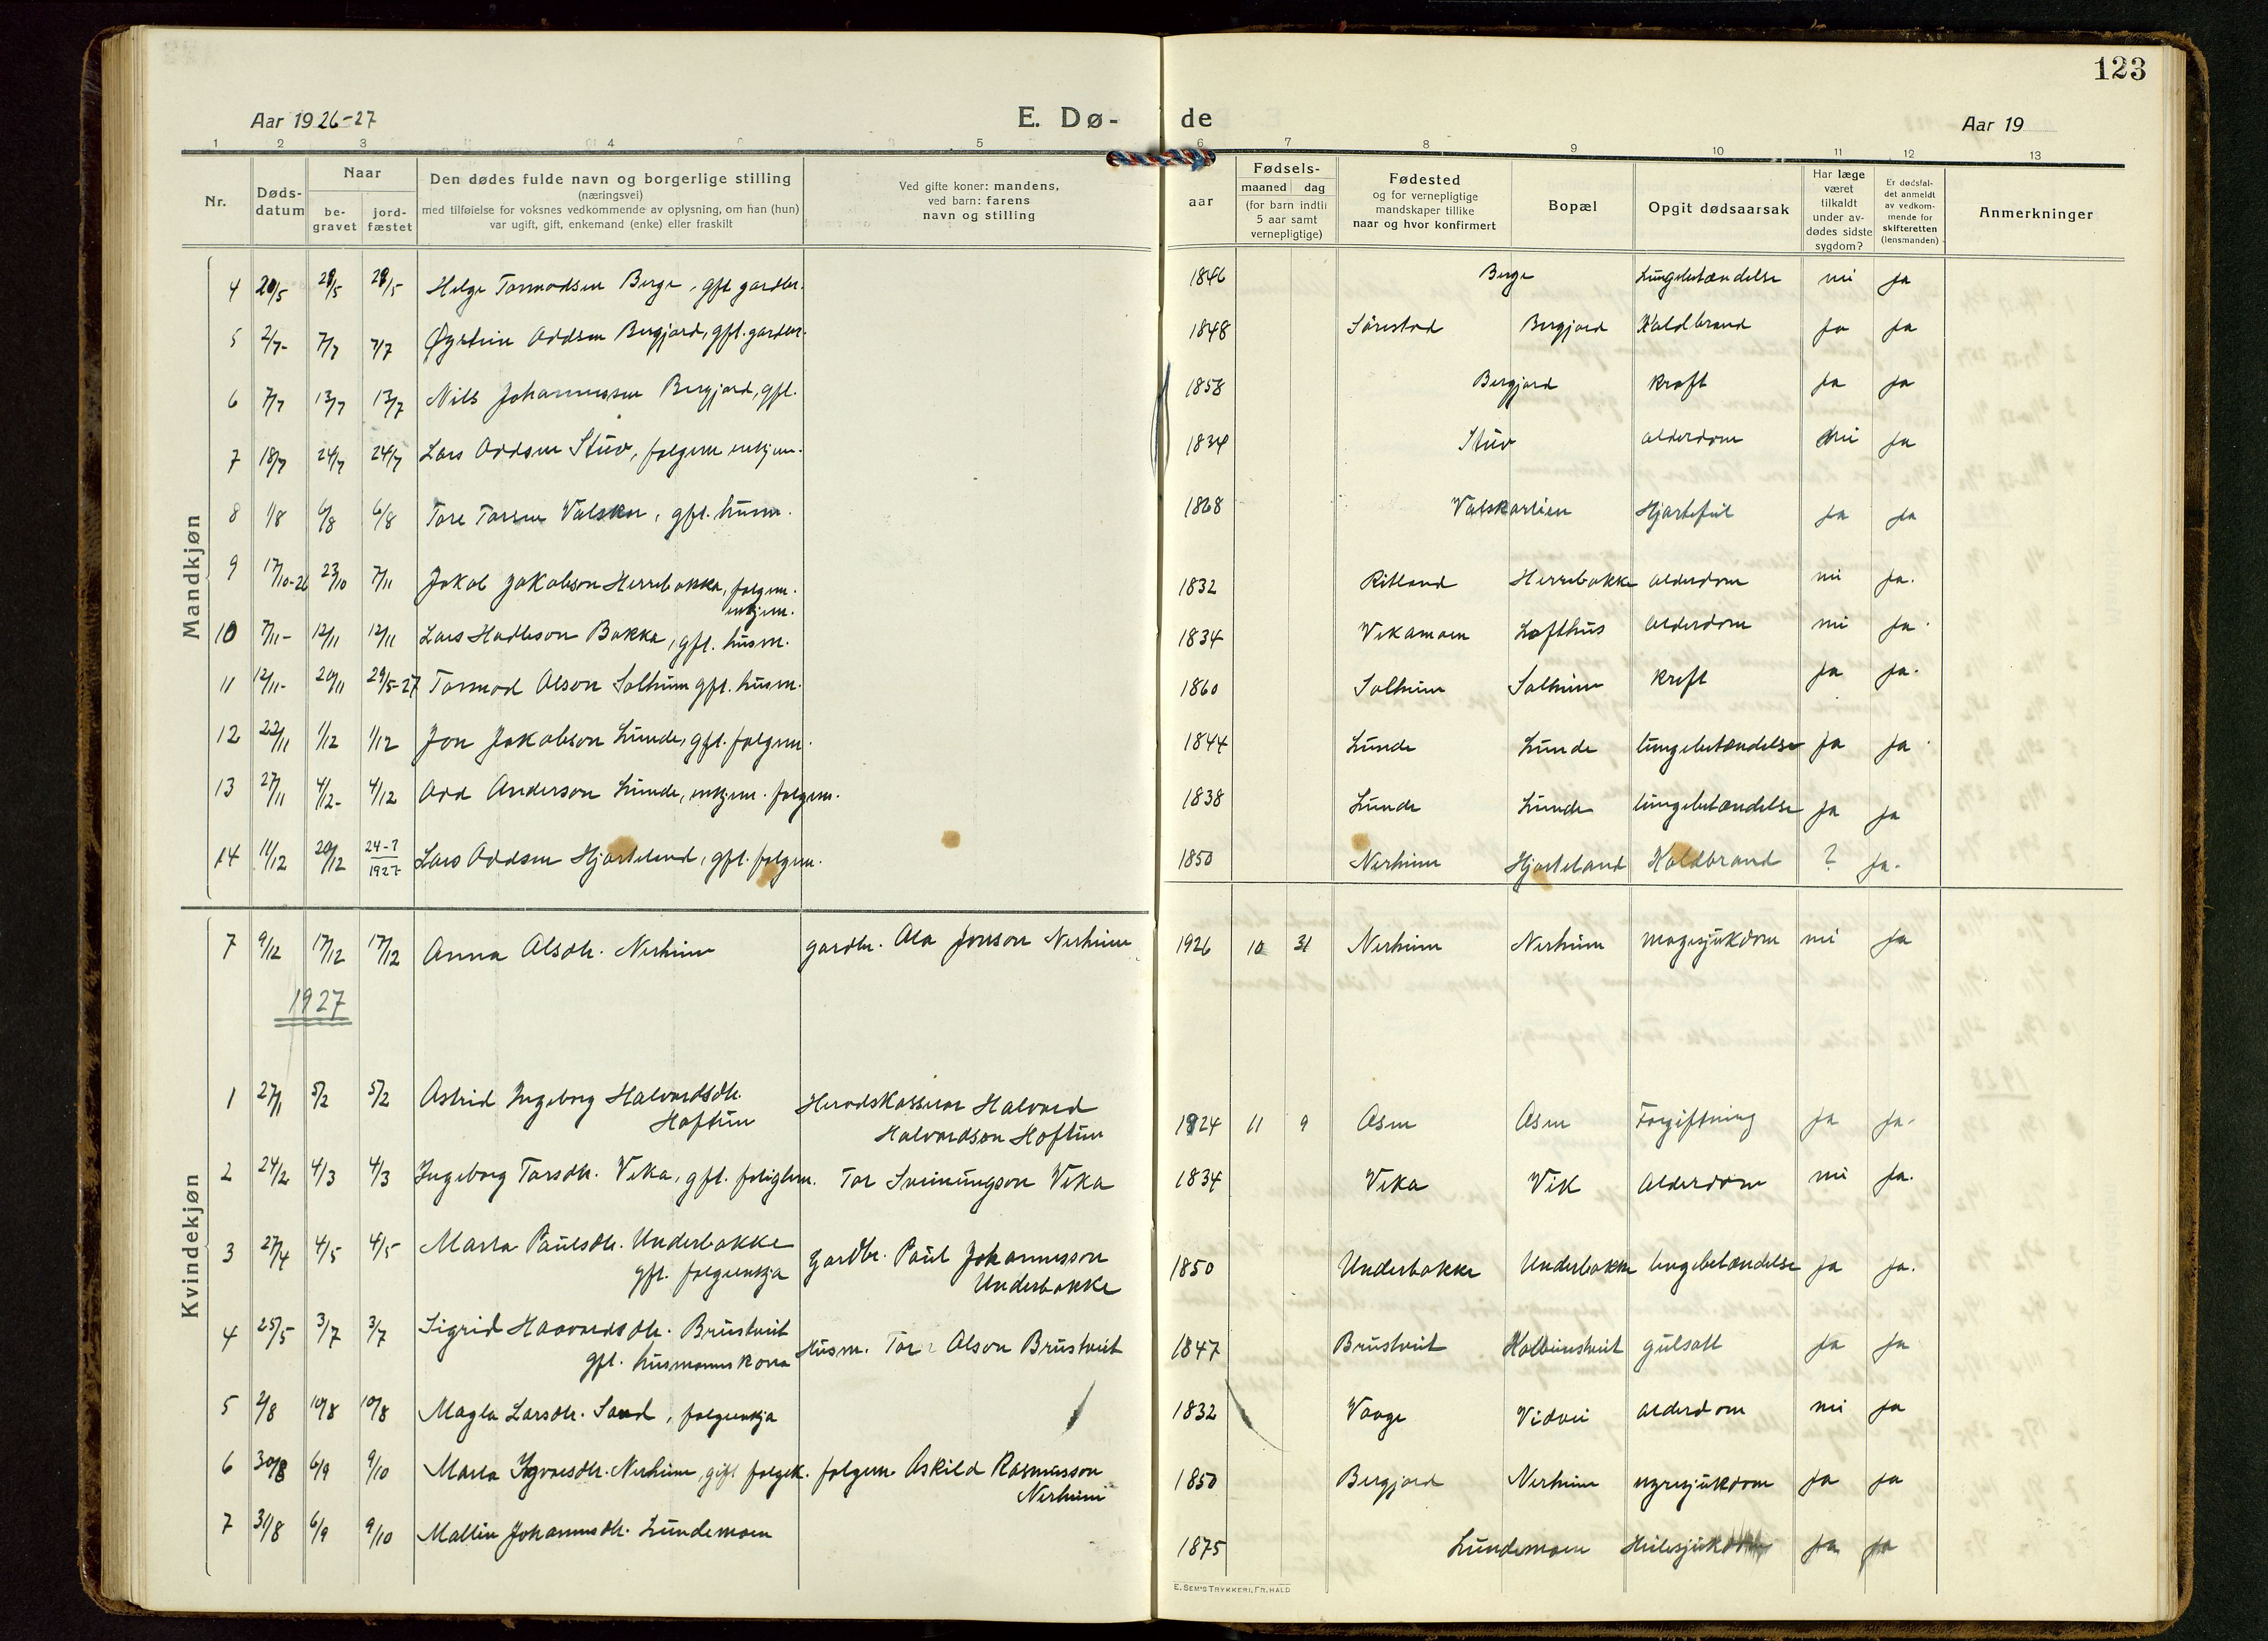 123
Aar 1926-27
E. Dø-
de
Aar 19
1 2 3 4 5 6 7 8 9 10 11 12 13
Nr.
Døds-
datum
Naar
be-
gravet
jord-
fæstet
Den dødes fulde navn og borgerlige stilling
(næringsvei)
med tilføielse for voksnes vedkommende av oplysning, om han (hun)
var ugift, gift, enkemand (enke) eller fraskilt
Ved gifte koner: mandens,
ved barn: farens
navn og stilling
aar
Fødsels-
maaned dag
(for barn indtil
5 aar samt
vernepligtige)
Fødested
og for vernepligtige
mandskaper tillike
naar og hvor konfirmert
Bopæl
Opgit dødsaarsak
Har læge
været
tilkaldt
under av-
dødes sidste
sygdom?
Er dødsfal-
det anmeldt
av vedkom-
mende for
skifteretten
(lensmanden)
Anmerkninger
Mandkjøn
4 20/5 28/5 28/5 Helge Tormodsen Berge, gift gardbr. 1846 Berge Lungebetændelse nei Ja
5 2/7- 7/7 7/7 Øystein Oddsen Bergjord, gft. gardbr. 1848 Sørestad Bergjord Koldbrand Ja Ja
6 7/7 13/7 13/7 Nils Johannessen Bergjord, gft. 1858 Bergjord Kræft Ja Ja
7 18/7 24/7 24/7 Lars Oddsen Stuv, folgem. enkjem. 1834 Stuv alderdom nei Ja
8 1/8 6/8 6/8 Tore Torsen Valskar, gft. husm. 1868 Valskarlien Hjartefeil Ja Ja
9 17/10-26 23/10 7/11 Jakob Jakobson Herrebakka, folgem. 1832 Ritland Herrebakke alderdom nei Ja.
enkjem.
10 7/11- 12/11 12/11 Lars Hadleson Bakka, gft. husm. 1834 Vikamoen Lofthus alderdom nei Ja
11 12/11- 20/11 29/5-27 Tormod Olson Solheim gft. husm. 1860 Solheim Solheim Kreft Ja Ja.
12 22/11 1/12 1/12 Jon Jakobson Lunde, gft. folgem. 1844 Lunde Lunde lungebetændelse Ja Ja
13 27/11 4/12- 4/12 Odd Anderson Lunde, enkjem. folgem. 1838 Lunde Lunde lungebetændelse Ja Ja
14 11/12 20/12 24-7 1927 Lars Oddsen Hjarteland, gft. folgem. 1850 Nerheim Hjarteland Koldbrand ? Ja.
Kvindekjøn
7 9/12 17/12 17/12 Anna Olsdtr. Nerheim gardbr. Ola Jonson Nerheim 1926 10 31 Nerheim Nerheim magesjukdom nei Ja
1927
1 27/1 5/2 5/2 Astrid Ingeborg Halvardsdtr. Heradskasserar Halvard
Hoftun Halvardson Hoftun 1924 11 9 Åsen Åsen Forgiftning Ja Ja.
2 24/2 4/3 4/3 Ingeborg Torsdtr. Vika, gft. Tor Sveinungson Vika 1834 Vika Vik Alderdom nei Ja.
3 27/4 4/5 4/5 Marta Paulsdtr. Underbakke Gardbr. Paul Johannesson
gft. folgeenkja Underbakke 1850 Underbakke Underbakke lungebetændelse Ja Ja.
4 25/5 3/7 3/7 Sigrid Haavardsdtr. Brustveit Husm. Tor Olson Brustveit 1847 Brustveit gulsott Ja Ja
gft. husmannskona
5 2/8 10/8 10/8 Magla Larsdtr. Sand, folgeenkja 1832 Vaage Vidvei alderdom nei Ja
6 30/8 6/9 9/10 Marta Ingvarsdtr. Nerheim, gift folgek. folgem. Askild Rasmusson 1850 Bergjord Nerheim nyresjukdom Ja Ja
Nerheim
7 31/8 6/9 9/10 Mallin Johannesdtr. Lundemoen 1875 Lundemoen Ja Ja
E. SEM'S TRYKKERI, FR.HALD